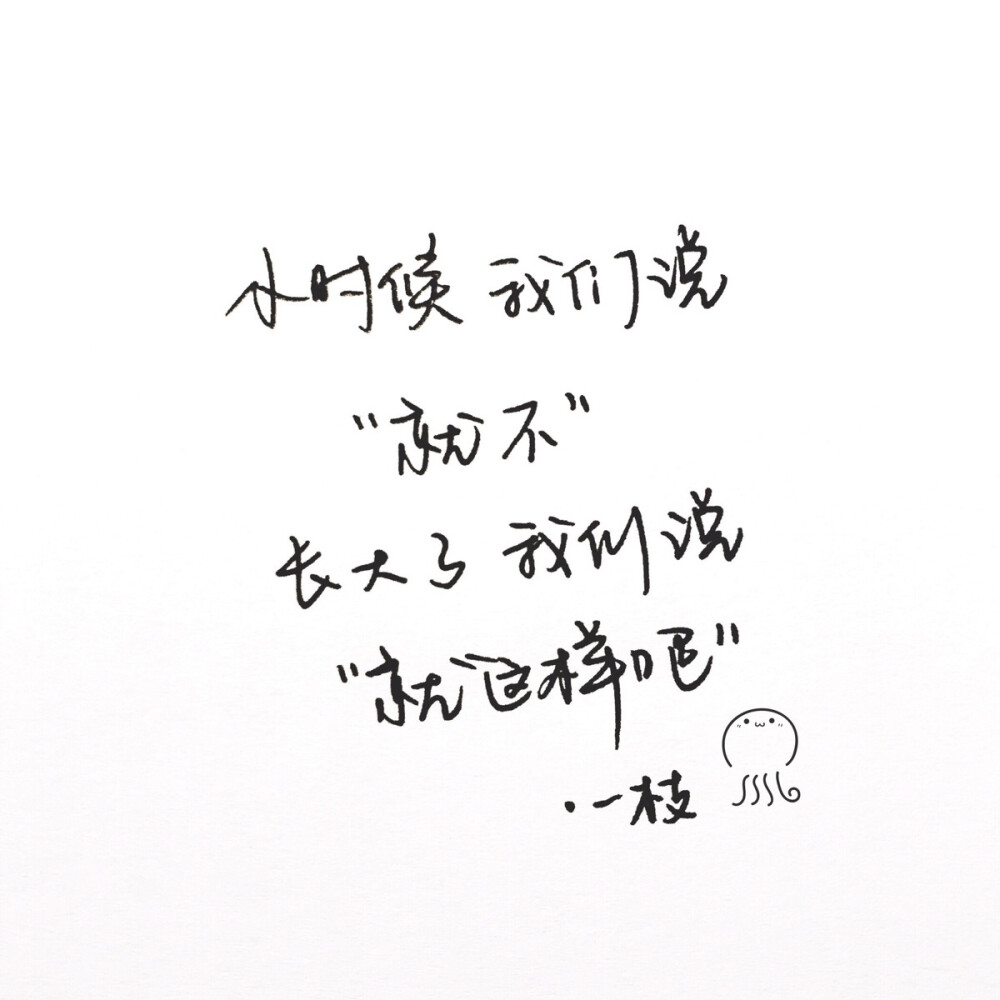 小时候 我们说
"就不"
长大了 我们说
"就这样吧"
·一枝